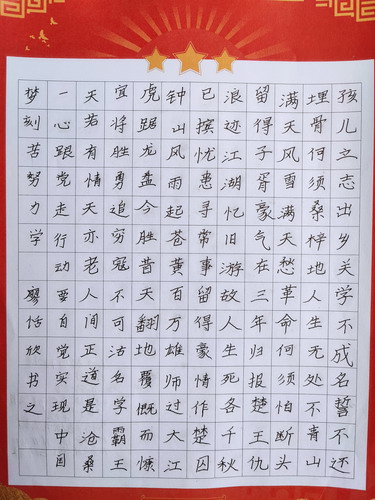 孩儿立志出乡关学不成名誓不还
埋骨何须桑梓地人生无处不青山
满天风雪满天愁革命何须怕断头
留得子胥豪气在三年归报楚王仇
浪迹江湖忆旧游故人生死各千秋
已摈忧患寻常事留得豪情作楚囚
钟山风雨起苍黄百万雄师过大江
虎踞龙盘今胜昔天翻地覆慨而慷
宜将胜勇追穷寇不可沽名学霸王
天若有情天亦老人间正道是沧桑
一心跟党走行动要自觉实现中国
梦刻苦努力学 廖恬欣书之